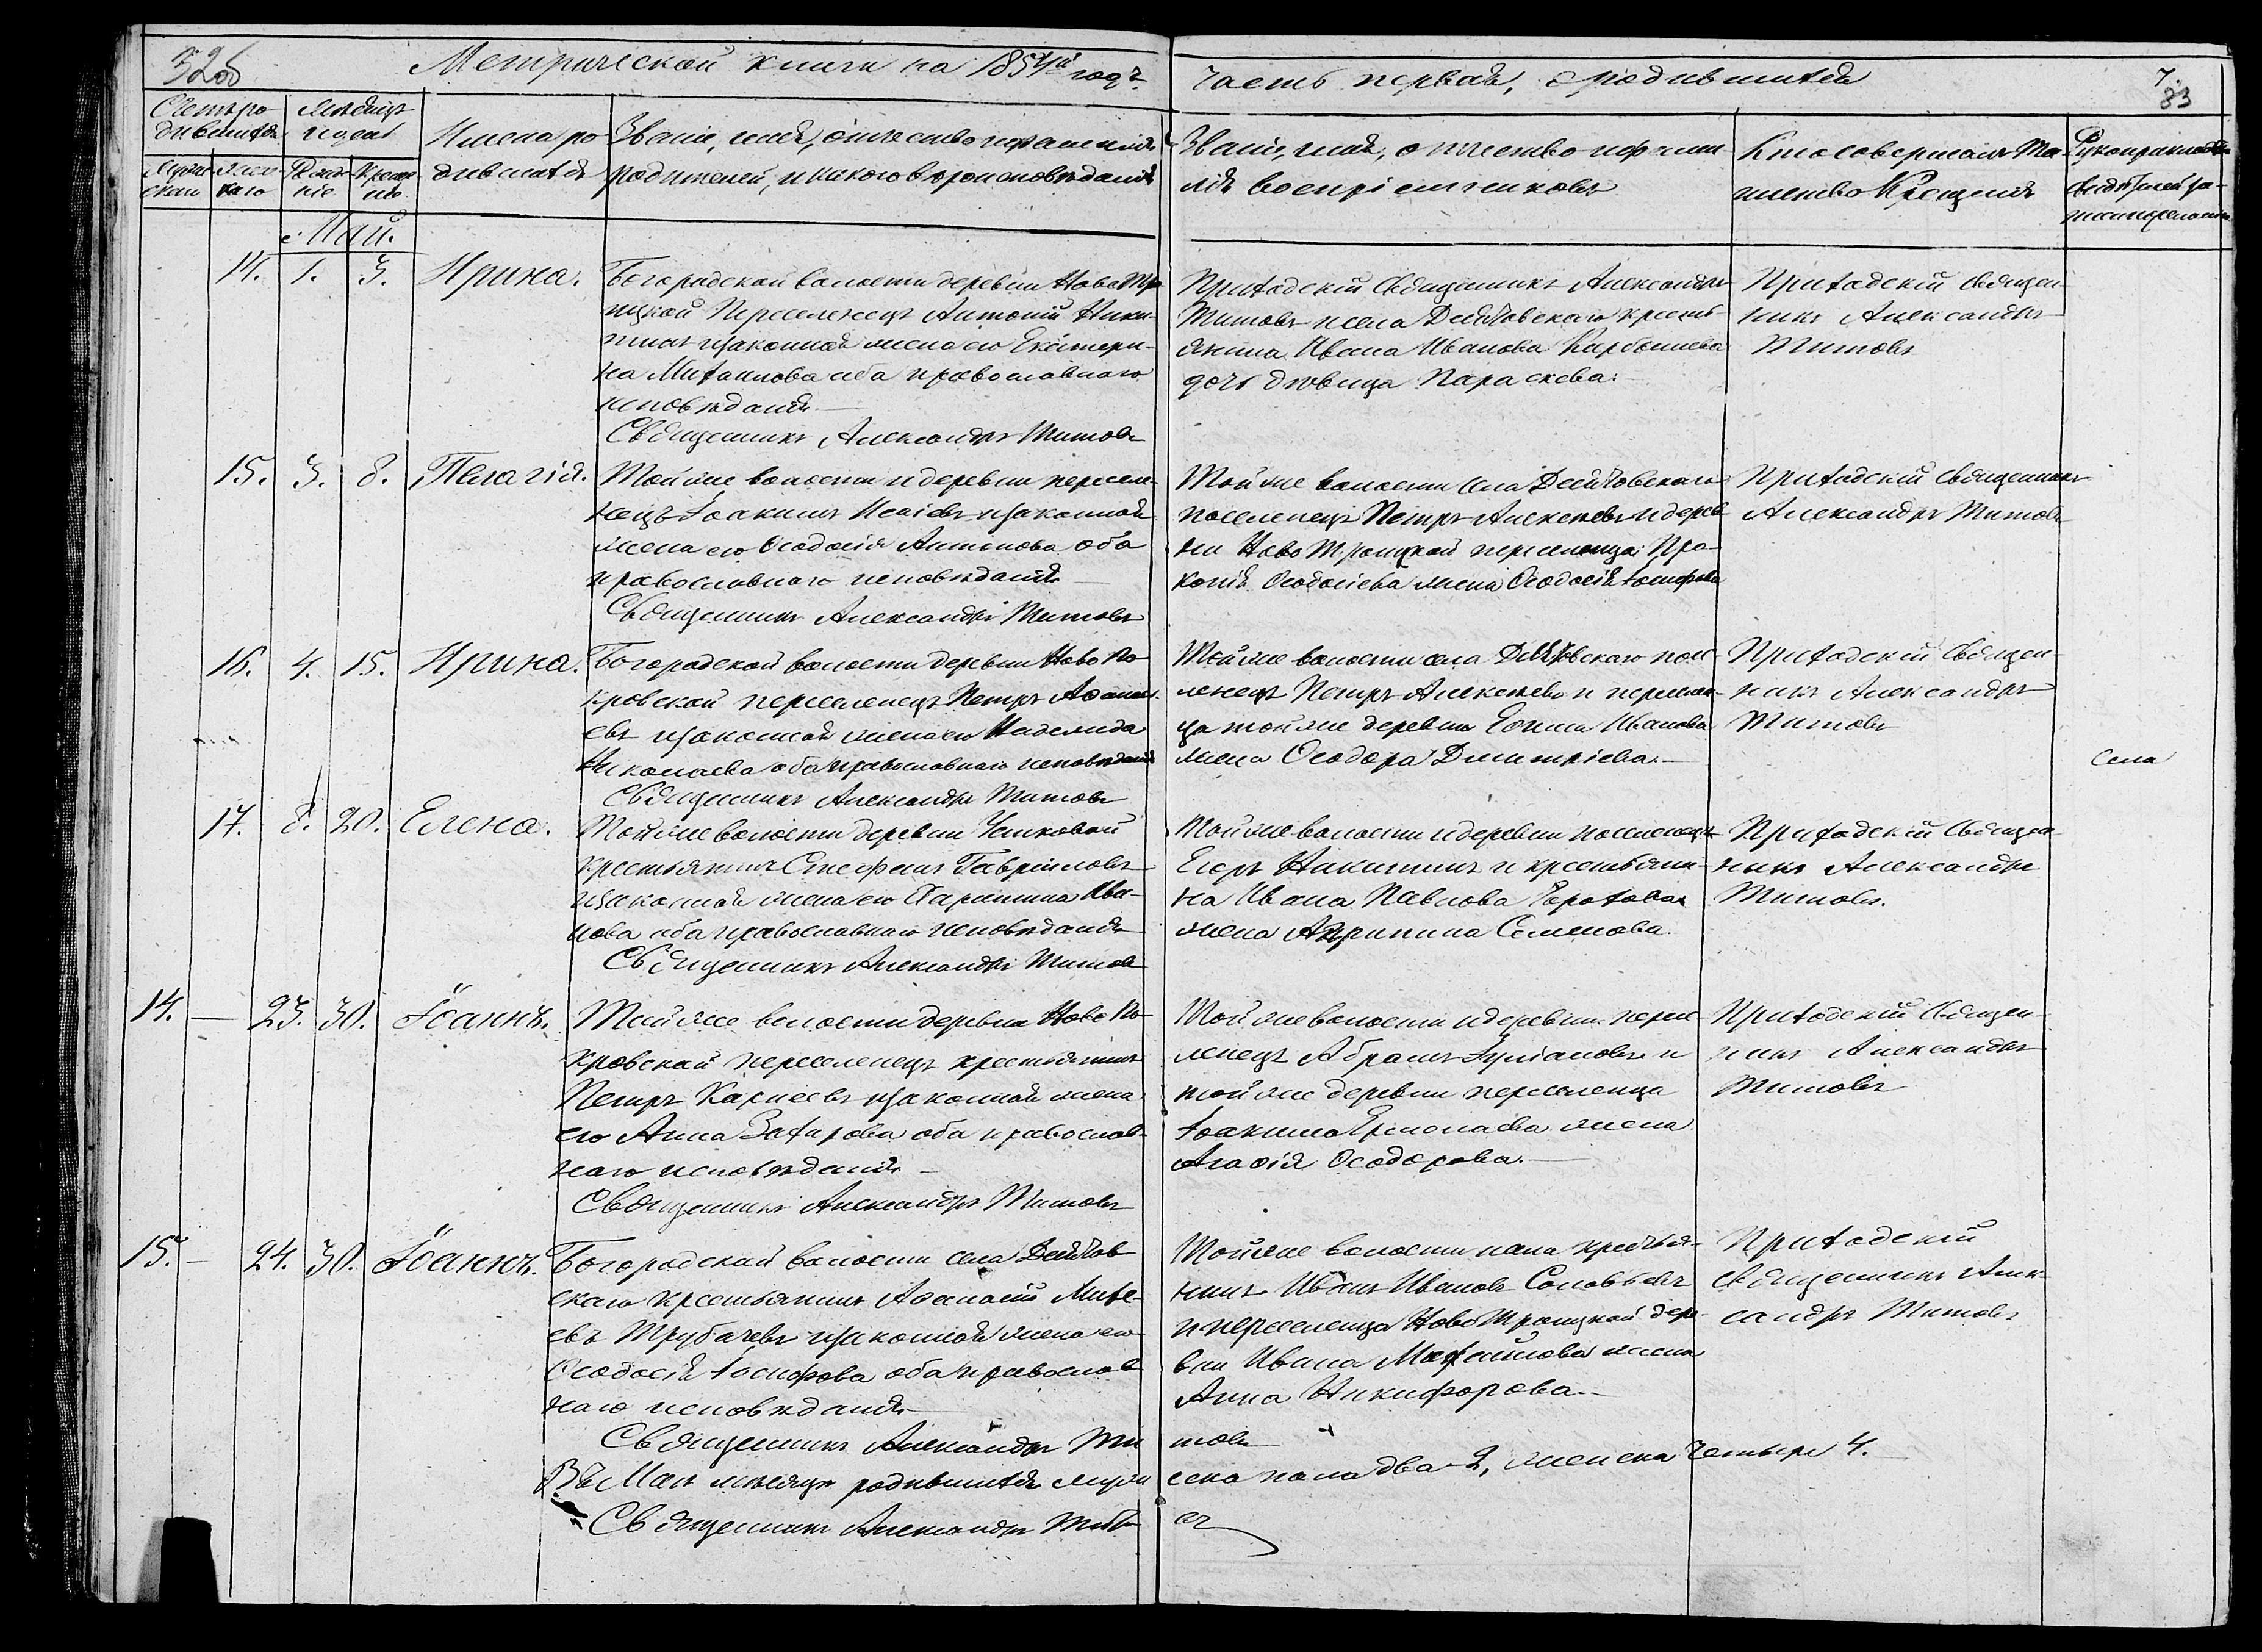 Метрической книги на 1854й годъ
часть первая, о родившихся
7.
83
Счетъ ро-
дившихся
Мѣсяцъ
и день
Муже-
скаго
Жен-
скаго
Рожде-
ніе
Креще-
ніе
Имена ро-
дившихся
Званіе, имя, отчество и фамилія
родителей, и какого вѣроисповѣданія
Званіе, имя, отчество и фами-
лія воспріемниковъ
Кто совершалъ Та-
инство Крещенія
Рукоприкладство
свидѣтелей за-
писи по желанію
Май.
14. 1. 3. Ирина.
Богородской волости деревни Ново Тро-
ицкой Переселенецъ Антоній Ники-
тинъ и законная жена его Екатери-
на Михаилова оба православнаго
исповѣданія
Священникъ Александръ Титовъ
Приходскій Священникъ Александръ
Титовъ и села Десятовскаго кресть-
янина Ивана Иванова
дочь дѣвица Параскева.
Приходскій Священ-
никъ Александръ
Титовъ
15. 3. 8. Пелагія.
Той же волости и деревни переселе-
нецъ Іоакимъ и законная
жена его Ѳеодосія Антонова оба
православнаго исповѣданія
Священникъ Александръ Титовъ
Той же волости села Десятовскаго
поселенецъ Петръ Алексѣевъ и дерев-
ни Ново Троицкой переселенца Про-
копія Ѳеодосіева жена Ѳеодосія Іосифова
Приходскій Священникъ
Александръ Титовъ
16. 4. 15. Ирина.
Богородской волости деревни Ново По-
кровской переселенецъ Петръ Аѳанась-
евъ и законная жена его Надежда
Николаева оба православнаго исповѣданія
Священникъ Александръ Титовъ
Той же волости села Десятовскаго посе-
ленецъ Петръ Алексѣевъ и переселен-
ца той же деревни Еѳима Иванова
жена Ѳеодора Димитріева.
Приходскій Священ-
никъ Александръ
Титовъ
Села
17. 8. 20. Елена.
Той же волости деревни
крестьянинъ Стефанъ Гавріиловъ
и законная жена его Харитина Ива-
нова оба православнаго исповѣданія
Священникъ Александръ Титовъ
Той же волости и деревни поселенецъ
Егоръ Никитинъ и крестьяни-
на Ивана Павлова
жена Агрипина Семенова.
Приходскій Священ-
никъ Александръ
Титовъ.
14. — 23. 30. Іоаннъ.
Той же волости деревни Ново По-
кровской переселенецъ крестьянинъ
Петръ Карнеевъ и законная жена
его Анна Захарова оба православ-
наго исповѣданія
Священникъ Александръ Титовъ
Той же волости и деревни пересе-
ленецъ Абрамъ Іуліановъ и
той же деревни переселенца
Іоакима Ермолаева жена
Агаѳія Ѳеодорова.
Приходскій Священ-
никъ Александръ
Титовъ
15. — 24. 30. Іоаннъ.
Богородской волости села Десятов-
скаго крестьянинъ Аѳанасій Михе-
евъ Трубачевъ и законная жена его
Ѳеодосія Іосифова оба православ-
наго исповѣданія
Священникъ Александръ Ти
товъ
Той же волости села крестья-
нинъ Иванъ Ивановъ Соловьевъ
и переселенца Ново Троицкой дере-
вни Ивана Михаилова жена
Анна Никифорова.
Приходскій
Священникъ Алек-
сандръ Титовъ
Въ Маѣ мѣсяцѣ родившихся муже
ска пола два 2, женска четыре 4.
Священникъ Александръ Тито
въ